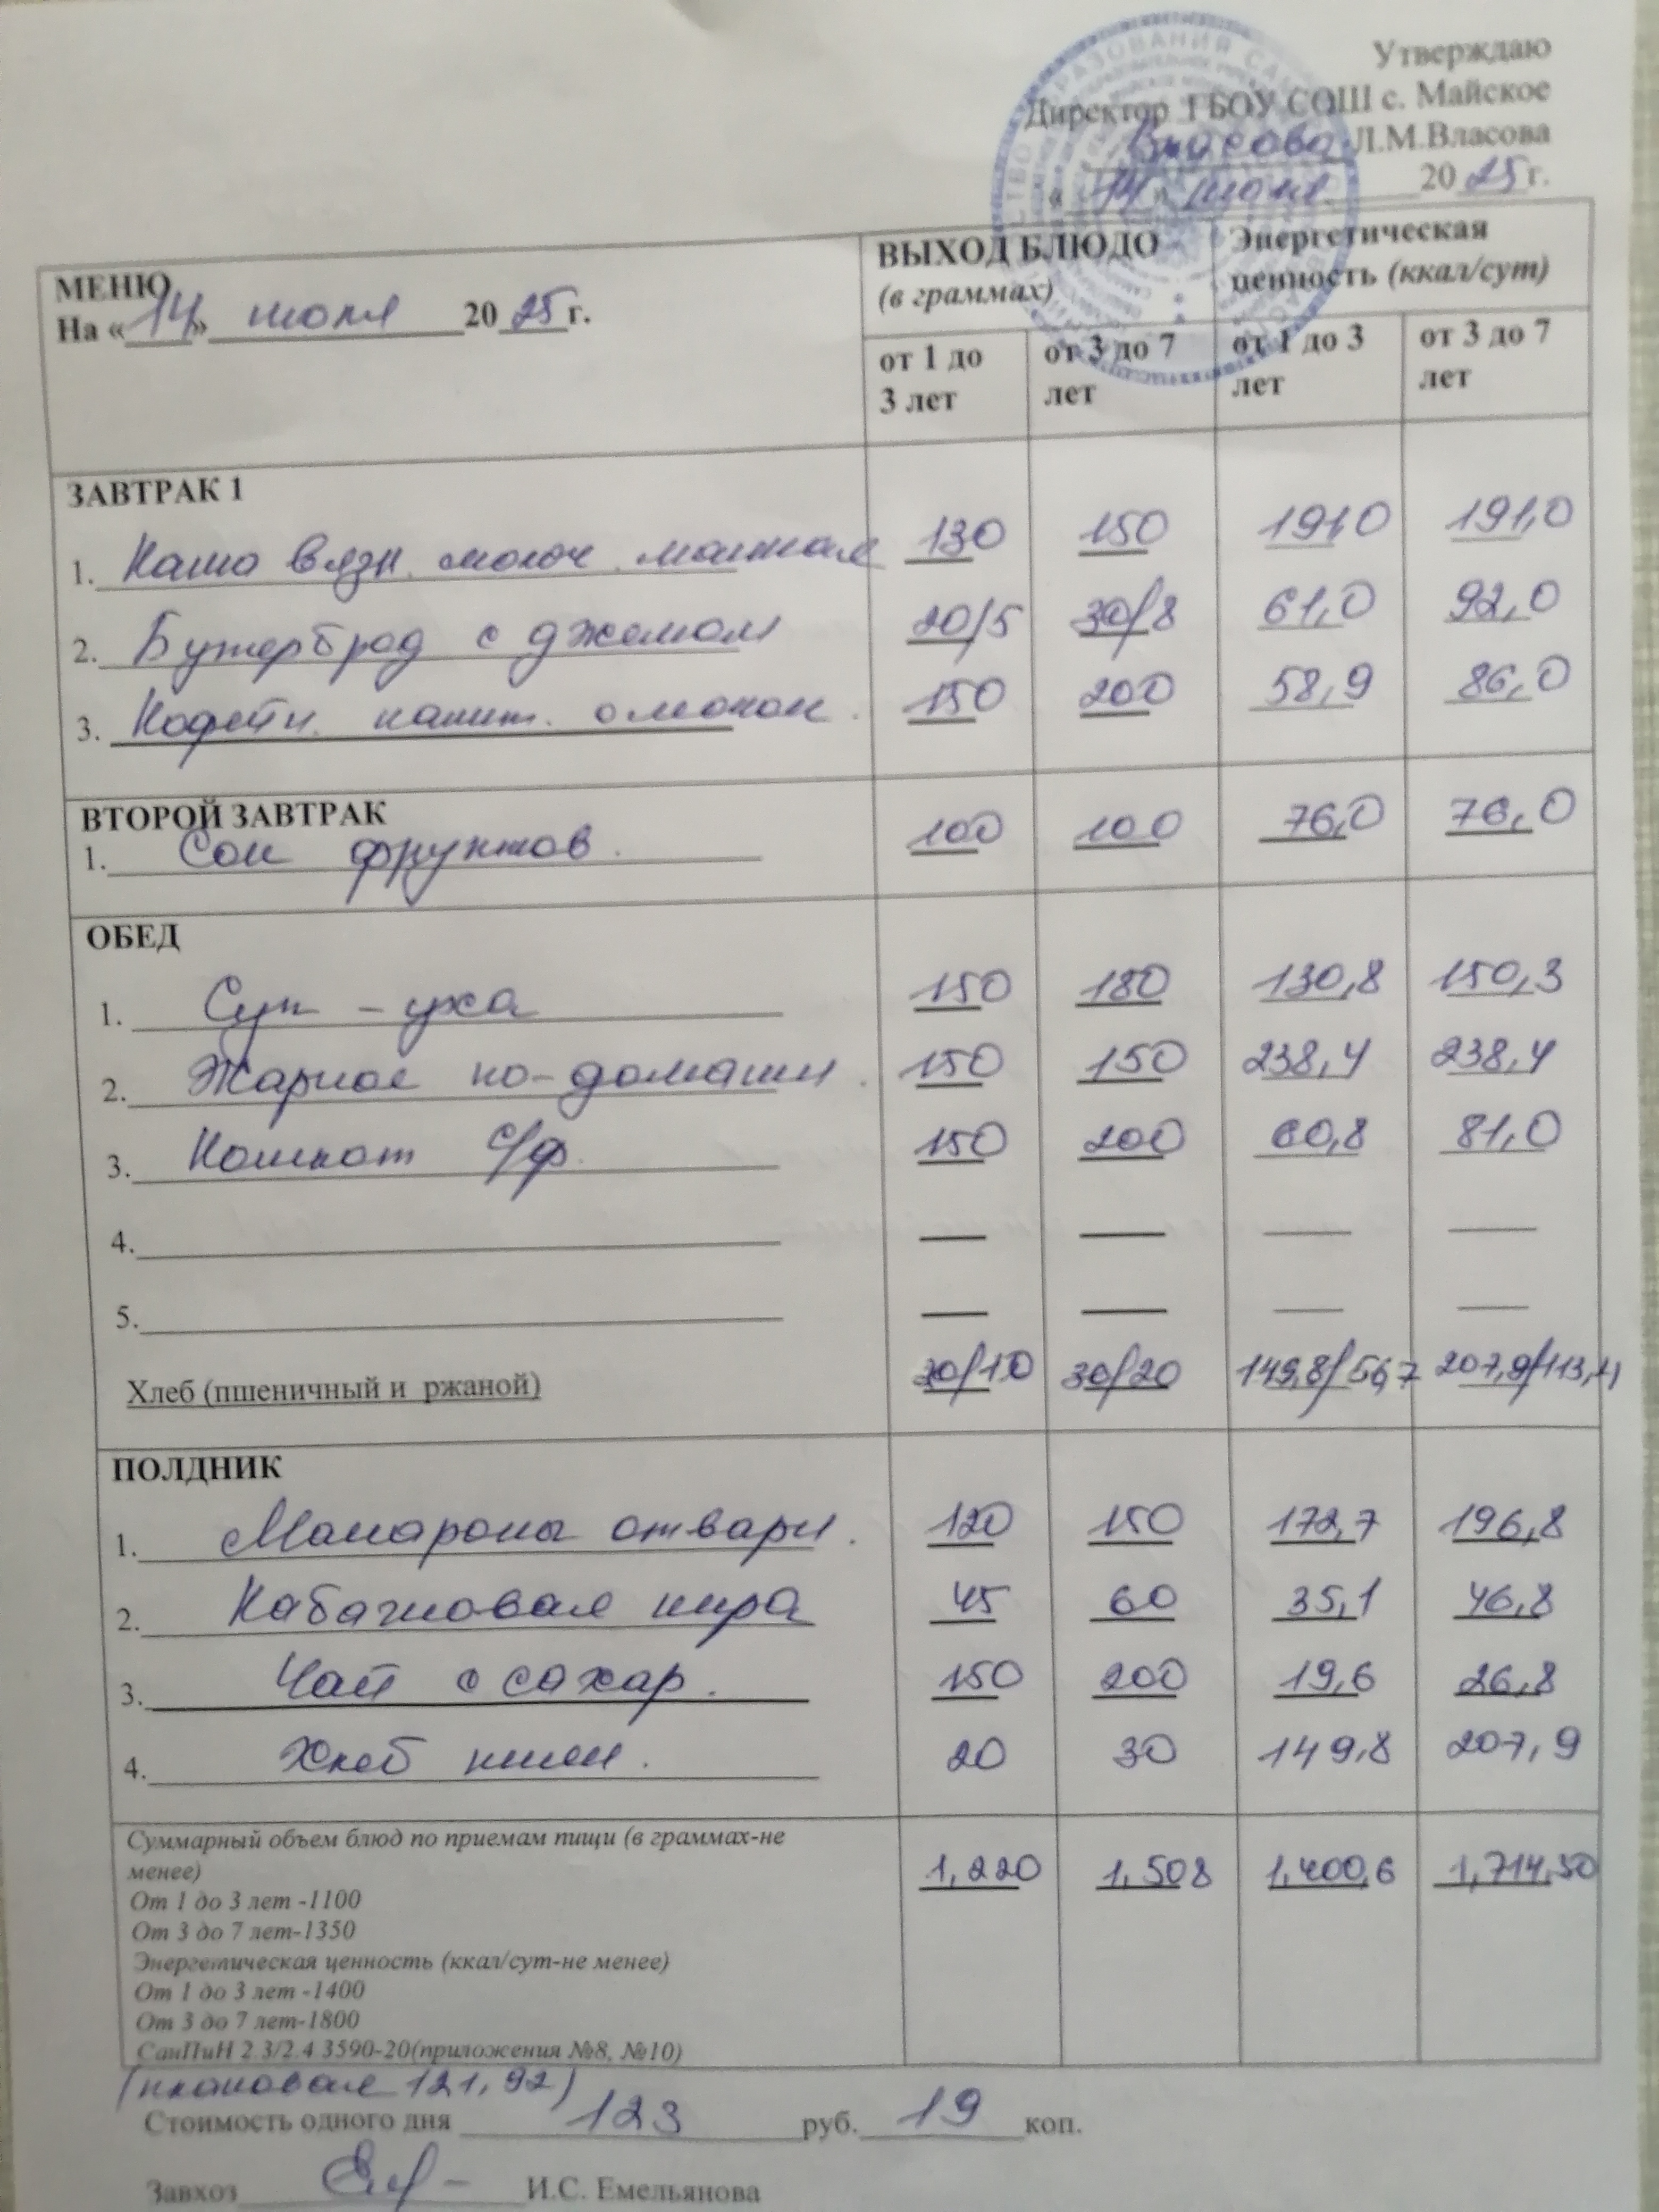 Утверждаю
Директор ГБОУ СОШ с. Майское
Власова Л.М.Власова
«14» июля 2025г.
МЕНЮ
На «14» июля 2025г.
ВЫХОД БЛЮДО
(в граммах)
Энергетическая
ценность (ккал/сут)
от 1 до 3 лет
от 3 до 7 лет
от 1 до 3 лет
от 3 до 7 лет
ЗАВТРАК 1
1. Каша вязк. молоч. 130 150 191,0 191,0
2. Бутерброд с джемом 20/5 30/8 61,0 92,0
3. Кофейн. напит. с молоком 150 200 58,9 86,0
ВТОРОЙ ЗАВТРАК
1. Сок фруктов. 100 100 76,0 76,0
ОБЕД
1. Суп - уха 150 180 130,8 150,3
2. Жаркое по-домашн. 150 150 238,4 238,4
3. Компот с/ф. 150 200 60,8 81,0
4. — — — —
5. — — — —
Хлеб (пшеничный и ржаной) 20/10 30/20 149,8/56,7 207,9/113,4
ПОЛДНИК
1. Макароны отварн. 120 150 172,7 196,8
2. Кабачковая икра 45 60 35,1 46,8
3. Чай с сахар. 150 200 19,6 26,8
4. Хлеб пшен. 20 30 149,8 207,9
Суммарный объем блюд по приемам пищи (в граммах-не
менее)
1,220 1,508 1,400,6 1,714,30
От 1 до 3 лет -1100
От 3 до 7 лет-1350
Энергетическая ценность (ккал/сут-не менее)
От 1 до 3 лет -1400
От 3 до 7 лет-1800
СанПиН 2.3/2.4.3590-20(приложения №8, №10)
(плановая 121,92)
Стоимость одного дня 123 руб. 19 коп.
Завхоз И.С. Емельянова